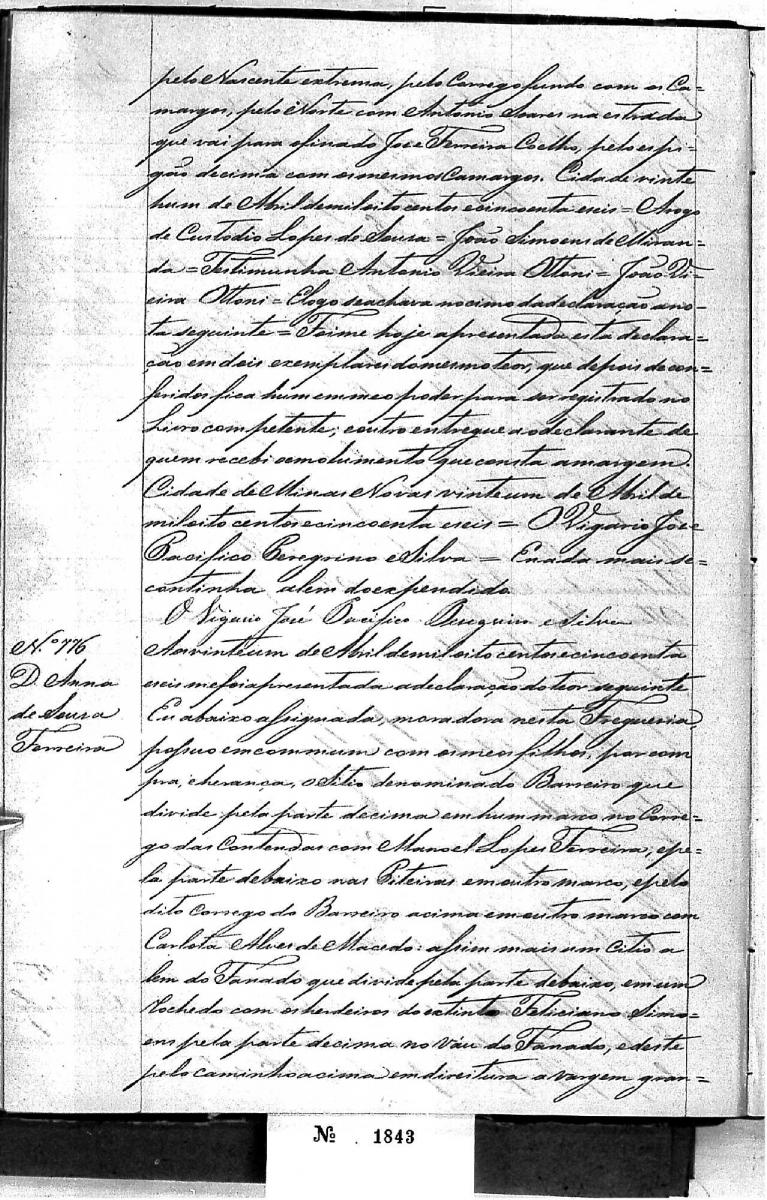 pelo Nascente extrema, pelo Corrego fundo com os Ca-
margos; pelo Norte com Antonio Soares na estrada
que vai para o finado Joze Ferreira Coelho, pelo espi-
gão decima com os mesmos Camargos. Cidade vinte
hum de Abril de mil oito centos e cincoenta e seis = Arogo
de Custodio Lopes de Sousa = João Simoens de Miran-
da = Testimunha Antonio Vieira Ottoni = João Vi-
eira Ottoni = E logo se achava no cimo da declaração a no-
ta seguinte = Foi me hoje apresentada esta declara-
ção em dois exemplares do mesmo teor, que depois de con=
feridos fica hum em meo poder para ser registrado no
Livro competente, e outro entregue ao declarante de
quem recebi o emolumento que consta a margem.
Cidade de Minas Novas vinte um de Abril de
mil oito centos e cincoenta e seis = O Vigario Joze
Pacifico Peregrino e Silva = E nada mais se=
continha alem do expendido
O Vigario José Pacifico Peregrino e Silva
N.º 776
D. Anna
de Sousa
Ferreira
Aos vinte um de Abril de mil oito centos e cincoenta
e seis me foi apresentada a declaração do teor seguinte
Eu abaixo assignada, moradora nesta Freguesia,
possuo em commum com os meos filhos, por com
pra, e herança, o Sitio denominado Barreiro que
divide pela parte decima em hum marco no Corre-
go das Contendas com Manoel Lopes Ferreira, e pe-
la parte debaixo nas Piteiras em outro marco, e pelo
dito Corrego do Barreiro acima em outro marco com
Carlota Alves de Macedo: assim mais um Citio a
lem do Fanado que divide pela parte debaixo, em um
Rochedo com os herdeiros do extinto Feliciano Simo-
ens pela parte decima no Váu do Fanado, e deste
pelo caminho acima em direitura a vargem gran=
Nº 1843